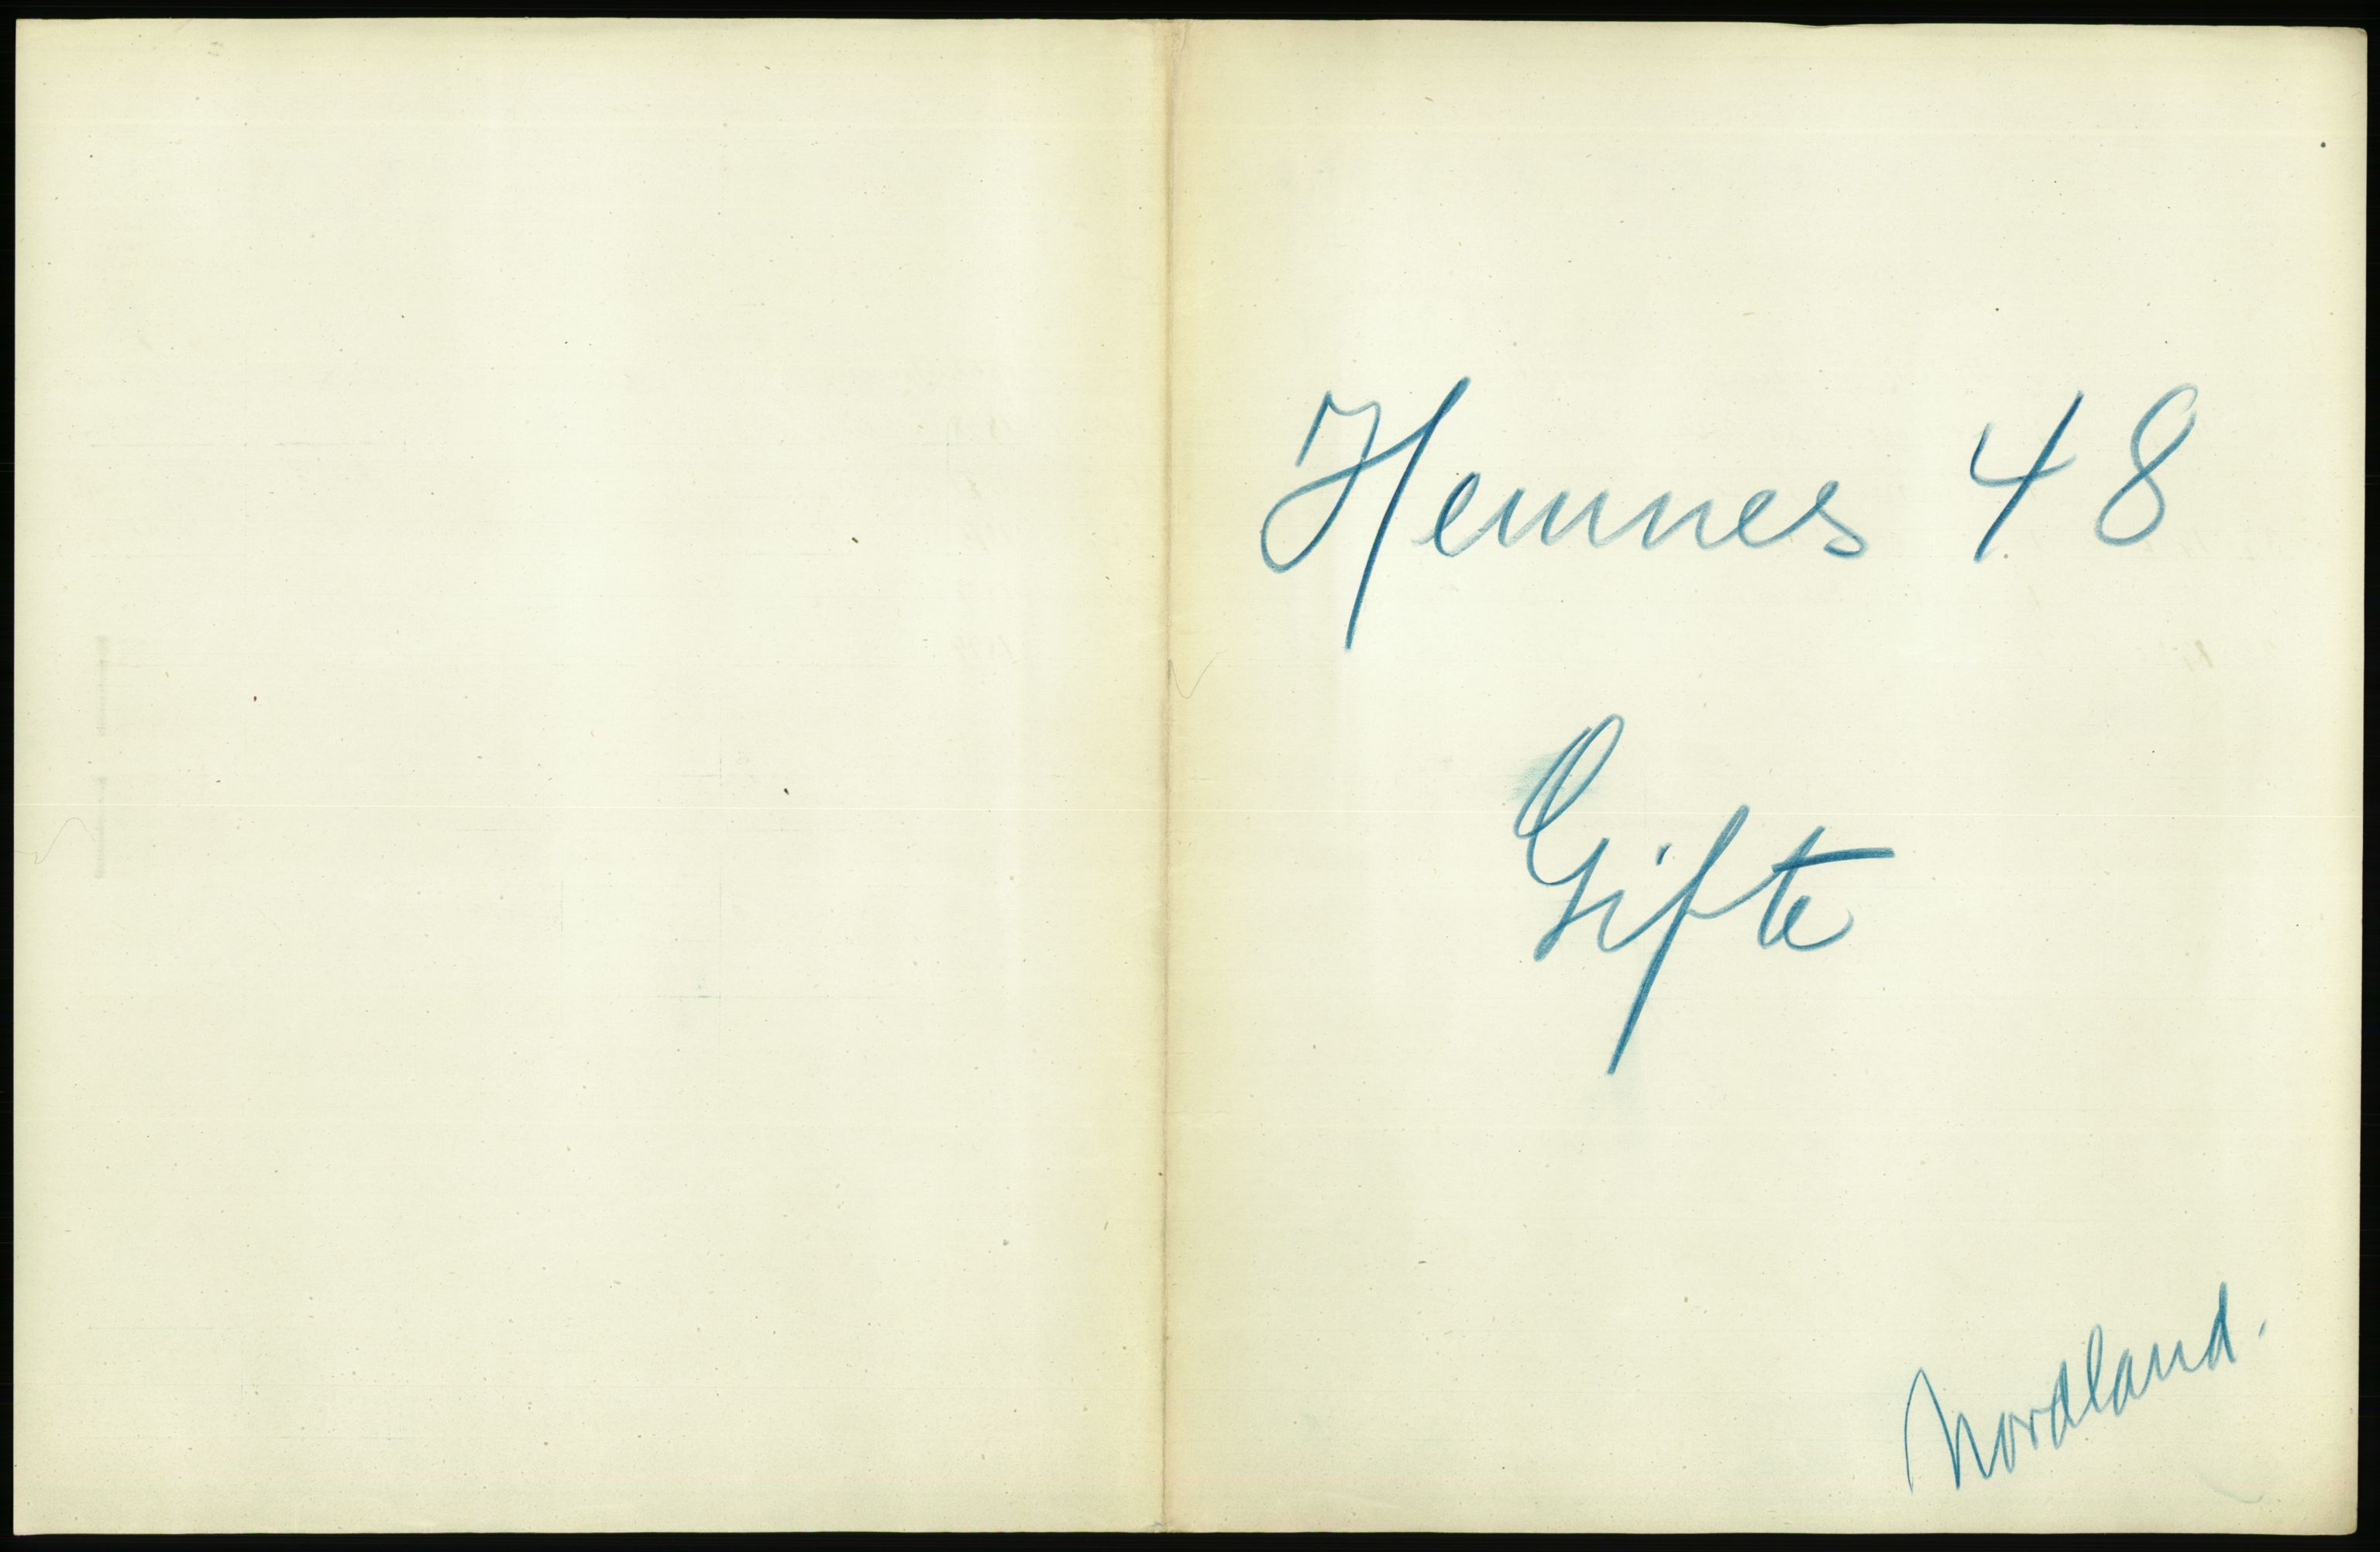 Hemnes 48
Gifte
Nordland.